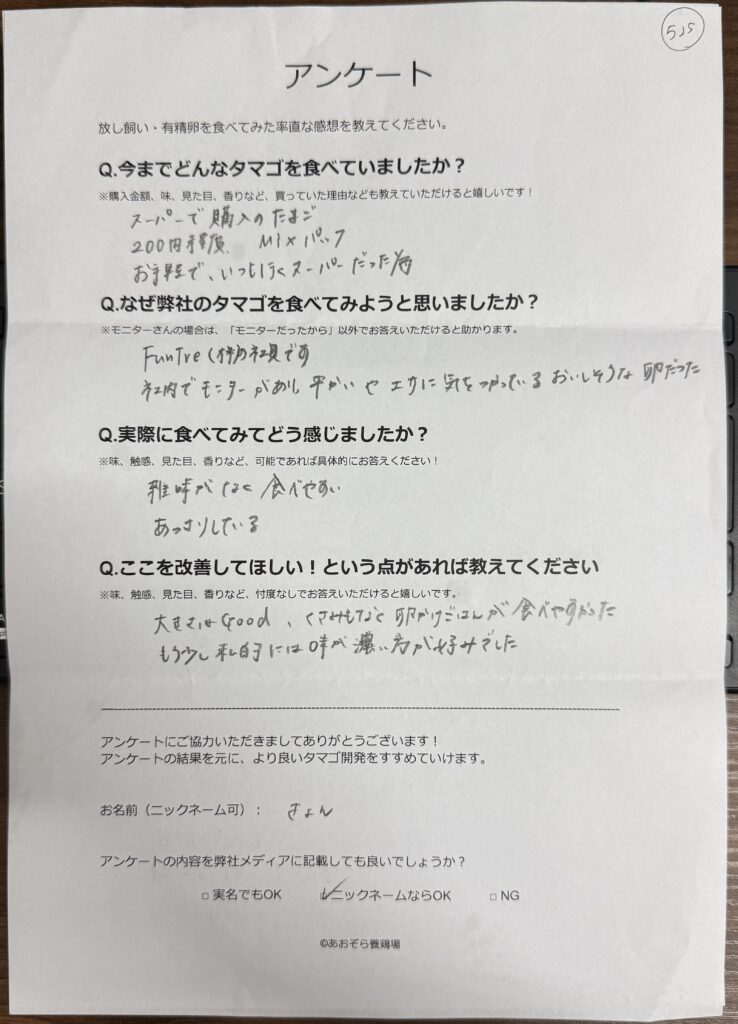 525
アンケート
放し飼い・有精卵を食べてみた率直な感想を教えてください。
Q.今までどんなタマゴを食べていましたか？
※購入金額、味、見た目、香りなど、買っていた理由なども教えていただけると嬉しいです！
スーパーで購入のたまご
200円程度 MIXパック
お手軽で、いつも行くスーパーだった為
Q.なぜ弊社のタマゴを食べてみようと思いましたか？
※モニターさんの場合は、「モニターだったから」以外でお答えいただけると助かります。
FunTre(株)社員です
社内でモニターがあり、平がいやエサに気をつかっているおいしそうな卵だった
Q.実際に食べてみてどう感じましたか？
※味、触感、見た目、香りなど、可能であれば具体的にお答えください！
雑味がなく食べやすい
あっさりしている
Q.ここを改善してほしい！という点があれば教えてください
※味、触感、見た目、香りなど、忖度なしでお答えいただけると嬉しいです。
大きさはGood、くさみもなく卵かけごはんが食べやすかった
もう少し私的には味が濃い方が好みでした
アンケートにご協力いただきましてありがとうございます！
アンケートの結果を元に、より良いタマゴ開発をすすめていけます。
お名前（ニックネーム可）： きょん
アンケートの内容を弊社メディアに記載しても良いでしょうか？
□ 実名でもOK ☑ニックネームならOK □ NG
©あおぞら養鶏場